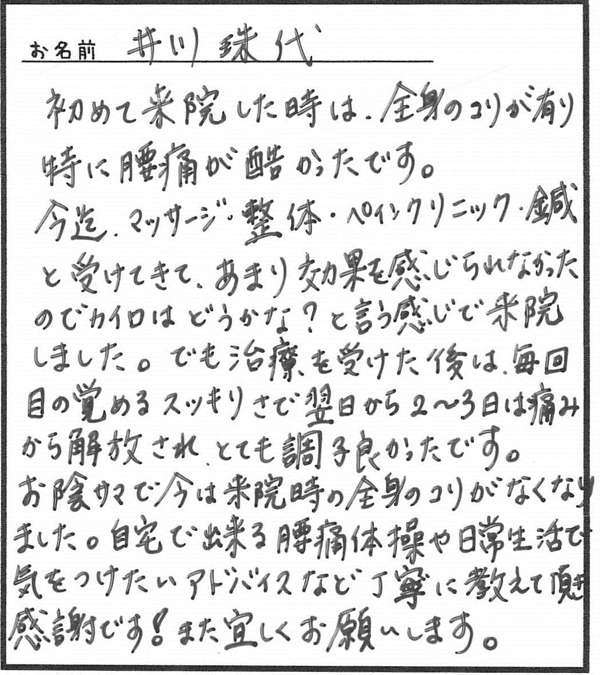 お名前 井川珠代
初めて来院した時は、全身のコリが有り
特に腰痛が酷かったです。
今迄、マッサージ・整体・ペインクリニック・鍼
と受けてきて、あまり効果を感じられなかった
のでカイロはどうかな?と言う感じで来院
しました。でも治療を受けた後は、毎回
目の覚めるスッキリさで翌日から2〜3日は痛み
から解放され、とても調子良かったです。
お陰サマで今は来院時の全身のコリがなくなり
ました。自宅で出来る腰痛体操や日常生活で
気をつけたいアドバイスなど丁寧に教えて頂き
感謝です!また宜しくお願いします。